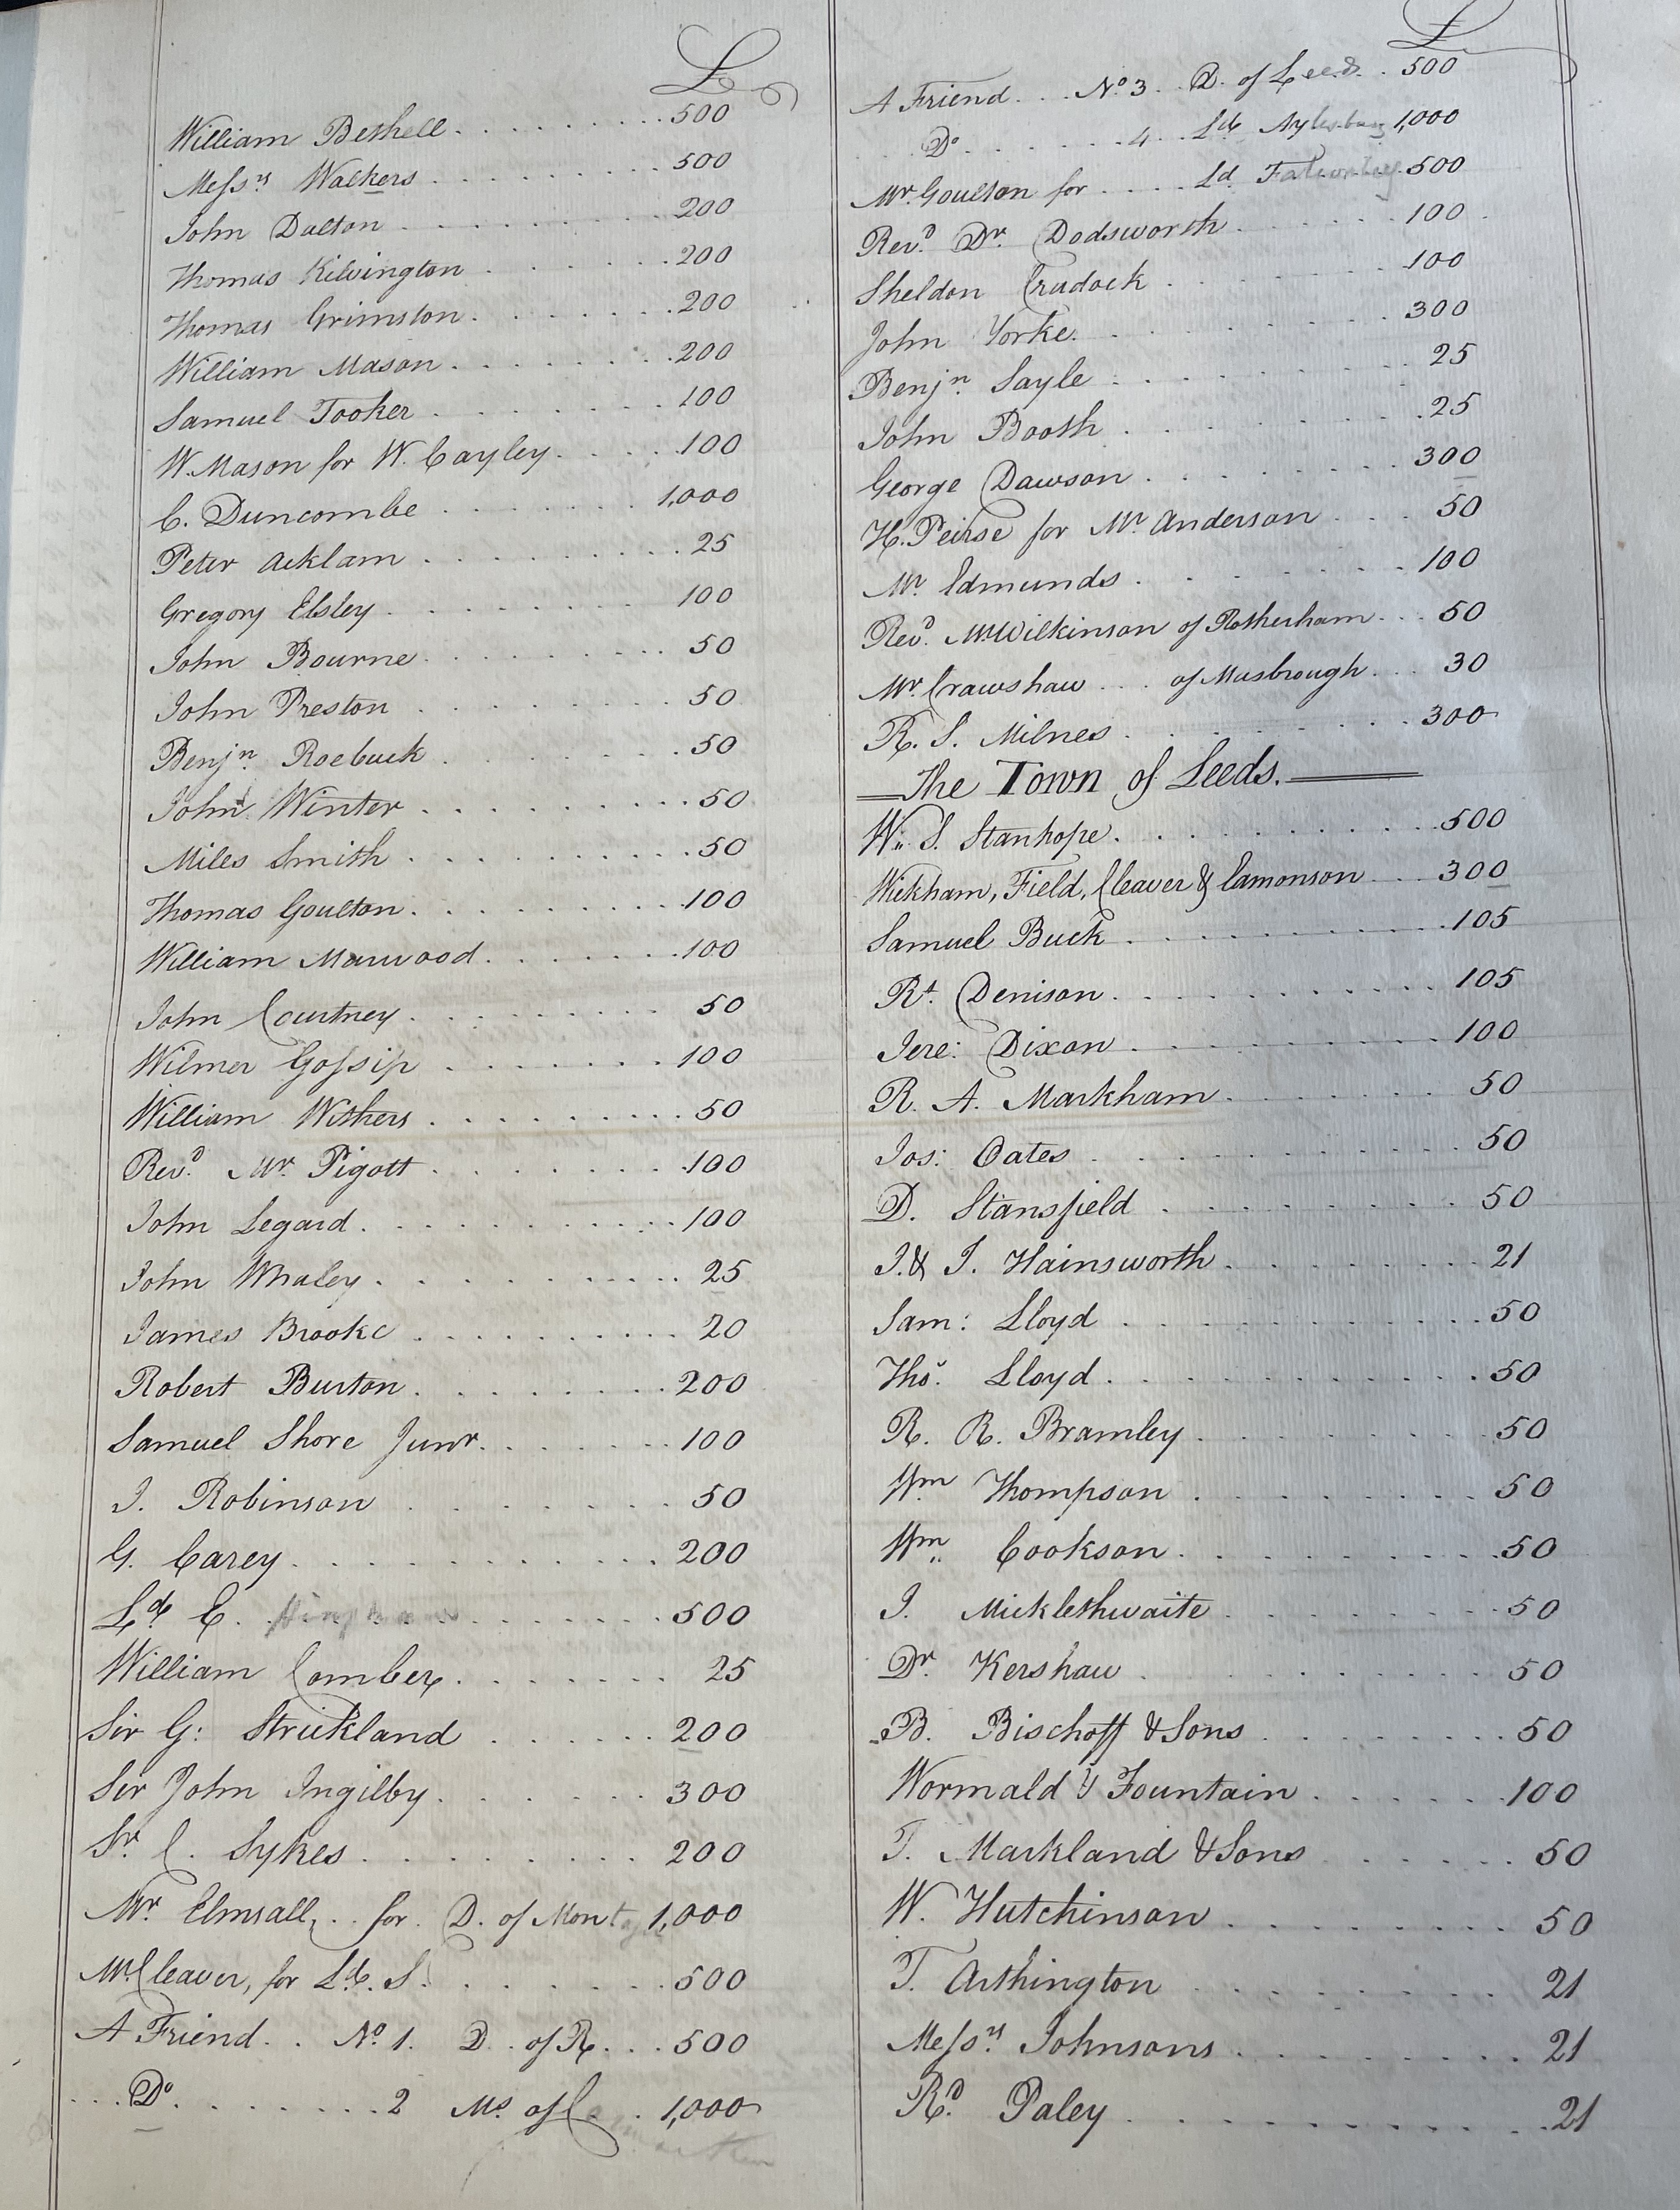 £
William Bethell 500
Messrs Walkers 500
John Dalton 200
Thomas Kilvington 200
Thomas Grimston 200
William Mason 200
Samuel Tooker 100
W. Mason for W. Cayley 100
C. Duncombe 1,000
Peter Acklam 25
Gregory Elsley 100
John Bourne 50
John Preston 50
Benjn. Roebuck 50
John Winter 50
Miles Smith 50
Thomas Goulton 100
William Marwood 100
John Courtney 50
Wilmer Gossip 100
William Withers 50
Revd. Mr. Pigott 100
John Legard 100
John Whaley 25
James Brooke 20
Robert Burton 200
Samuel Shore Junr. 100
I. Robinson 50
G. Carey 200
Ld. C. 500
William Comber 25
Sir G: Strickland 200
Sir John Ingilby 300
Sr. C. Sykes 200
Mr. Elmsall, for D. of Montagu 1,000
Mr. Cleaver, for Ld. S. 500
A Friend No. 1. D. of R. 500
Do. 2 Ms. of Carmarthen 1,000
£
A Friend No. 3 D. of Leeds 500
Do. 4 Ld. Aylesbury 1,000
Mr. Goulton for Ld. 500
Revd. Dr. Dodsworth 100
Sheldon Cradock 100
John Yorke 300
Benjn. Sayle 25
John Booth 25
George Dawson 300
H. Peirse for Mr. Anderson 50
Mr. Edmunds 100
Revd. Mr Wilkinson of Rotherham 50
Mr. Crawshaw of Masbrough 30
R. S. Milnes 300
The Town of Leeds.
W. S. Stanhope 500
Wickham, Field, Cleaver & Camonson 300
Samuel Buck 105
Rt. Denison 105
Jere: Dixon 100
R. A. Markham 50
Jos: Oates 50
D. Stansfield 50
I. & I. Hainsworth 21
Sam: Lloyd 50
Thos. Lloyd 50
R. R. Bramley 50
Wm Thompson 50
Wm Cookson 50
I. Micklethwaite 50
Dr. Kershaw 50
B. Bischoff & Sons 50
Wormald & Fountain 100
T. Markland & Sons 50
W. Hutchinson 50
T. Arthington 21
Messrs. Johnsons 21
Rd. Paley 21